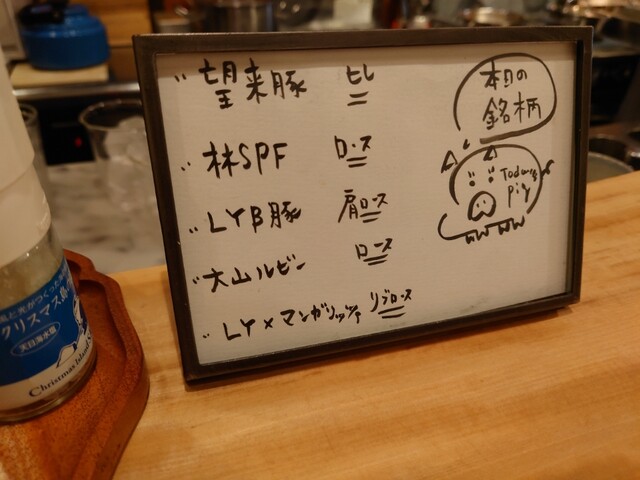 望来豚 ヒレ
林SPF ロース
LYB豚 肩ロース
大山ルビー ロース
LY×マンガリッツァ リブロース
本日の
銘柄
Today's
pig
クリスマス島の
天日海水塩
Christmas Island